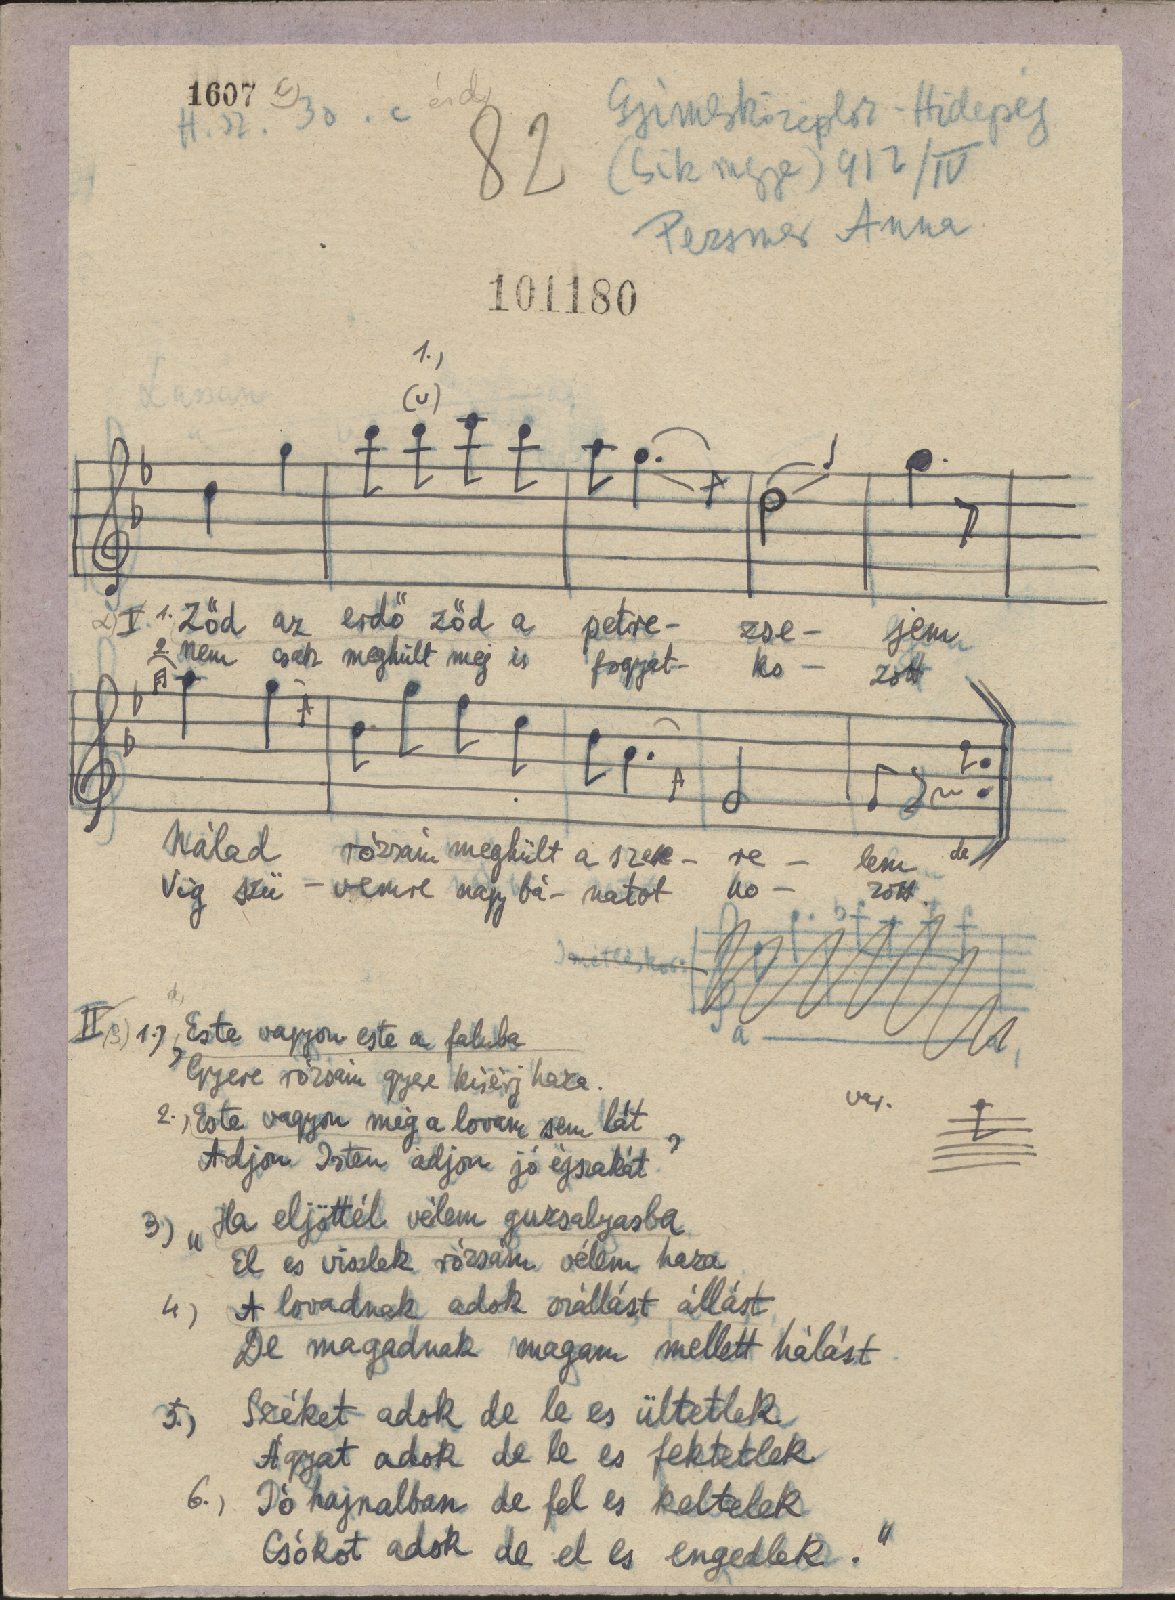 1607 c)
H. sz. 30. c
82
Gyimesközéplok - Hidegség
(Csík megye) 912/IV
Persmer Anna
101180
1.,
(u)
Lassan
I. 1. Zöd az erdő zöd a petre- zse- jem
2. nem csak meghült meg is fogyat- ko - zott
Nálad rózsám meghült a szere- re - lem de
Víg szü - vemre nagy bá- natot ho - zott.
II 1.) „Este vagyon este a faluba
Gyere rózsám gyere kisérj haza.
2., Este vagyon még a lovam sem lát
Adjon Isten adjon jó éjszakát"
var.
3) „Ha eljöttél vélem guzsalyasba
El es viszlek rózsám vélem haza
4) A lovadnak adok szállást állást
De magadnak magam mellett hálást.
5.) Széket adok de le es ültetlek
Ágyat adok de le es fektetlek
6., Jó hajnalban de fel es keltelek
Csókot adok de el es engedlek."